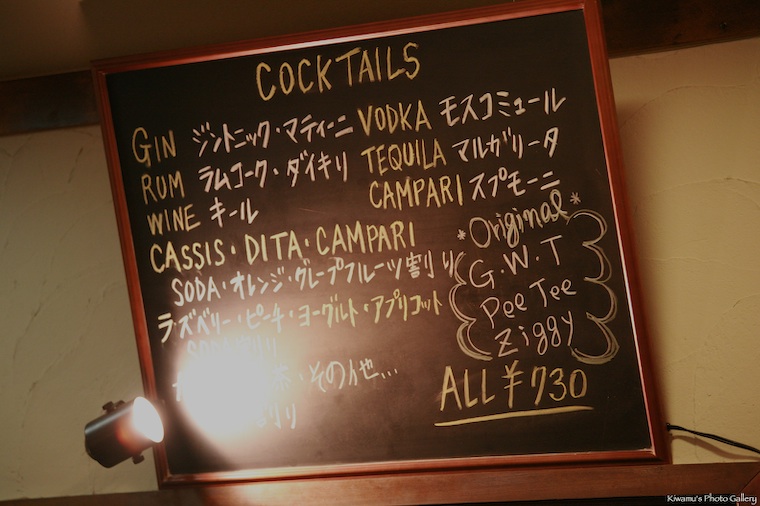 COCKTAILS
GIN ジントニック・マティーニ VODKA モスコミュール
RUM ラムコーク・ダイキリ TEQUILA マルガリータ
WINE キール CAMPARI スプモーニ
CASSIS・DITA・CAMPARI
SODA・オレンジ・グレープフルーツ割り
ラズベリー・ピーチ・ヨーグルト・アプリコット
・その他...
*Original*
G.W.T
Pee Tee
Ziggy
ALL ¥730
Kiwamu's Photo Gallery